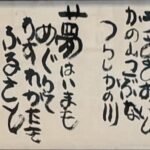 かの山こぶな
つりしかの川
夢はいまも
めぐりて
わすれがたき
ふるさと